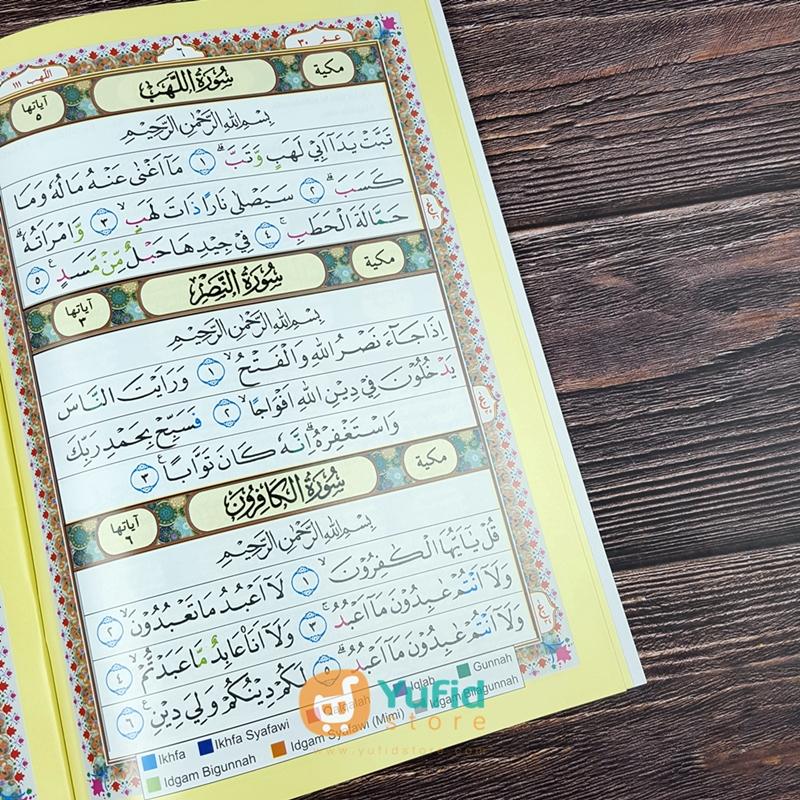 عمّ ٣٠
٦
اللهب ١١١
مكية
سُوْرَةُ اللَّهَبِ
آياتها ٥
بِسْمِ اللهِ الرَّحْمٰنِ الرَّحِيْمِ
تَبَّتْ يَدَآ اَبِيْ لَهَبٍ وَّتَبَّۗ ١ مَآ اَغْنٰى عَنْهُ مَالُهٗ وَمَا
كَسَبَۗ ٢ سَيَصْلٰى نَارًا ذَاتَ لَهَبٍۙ ٣ وَّامْرَاَتُهٗۗ
حَمَّالَةَ الْحَطَبِۚ ٤ فِيْ جِيْدِهَا حَبْلٌ مِّنْ مَّسَدٍࣖ ٥
مكية
سُوْرَةُ النَّصْرِ
آياتها ٣
بِسْمِ اللهِ الرَّحْمٰنِ الرَّحِيْمِ
اِذَا جَآءَ نَصْرُ اللهِ وَالْفَتْحُۙ ١ وَرَاَيْتَ النَّاسَ
يَدْخُلُوْنَ فِيْ دِيْنِ اللهِ اَفْوَاجًاۙ ٢ فَسَبِّحْ بِحَمْدِ رَبِّكَ
وَاسْتَغْفِرْهُۗ اِنَّهٗ كَانَ تَوَّابًاࣖ ٣
مكية
سُوْرَةُ الْكَافِرُوْنَ
آياتها ٦
بِسْمِ اللهِ الرَّحْمٰنِ الرَّحِيْمِ
قُلْ يٰٓاَيُّهَا الْكٰفِرُوْنَۙ ١ لَآ اَعْبُدُ مَا تَعْبُدُوْنَۙ ٢
وَلَآ اَنْتُمْ عٰبِدُوْنَ مَآ اَعْبُدُۚ ٣ وَلَآ اَنَا۠ عَابِدٌ مَّا عَبَدْتُّمْۙ ٤
وَلَآ اَنْتُمْ عٰبِدُوْنَ مَآ اَعْبُدُۗ ٥ لَكُمْ دِيْنُكُمْ وَلِيَ دِيْنِࣖ ٦
Ikhfa Ikhfa Syafawi Qalqalah Iqlab Gunnah
Idgam Bigunnah Idgam Syafawi (Mimi) Idgam Bilagunnah
Yufid
store
www.yufidstore.com